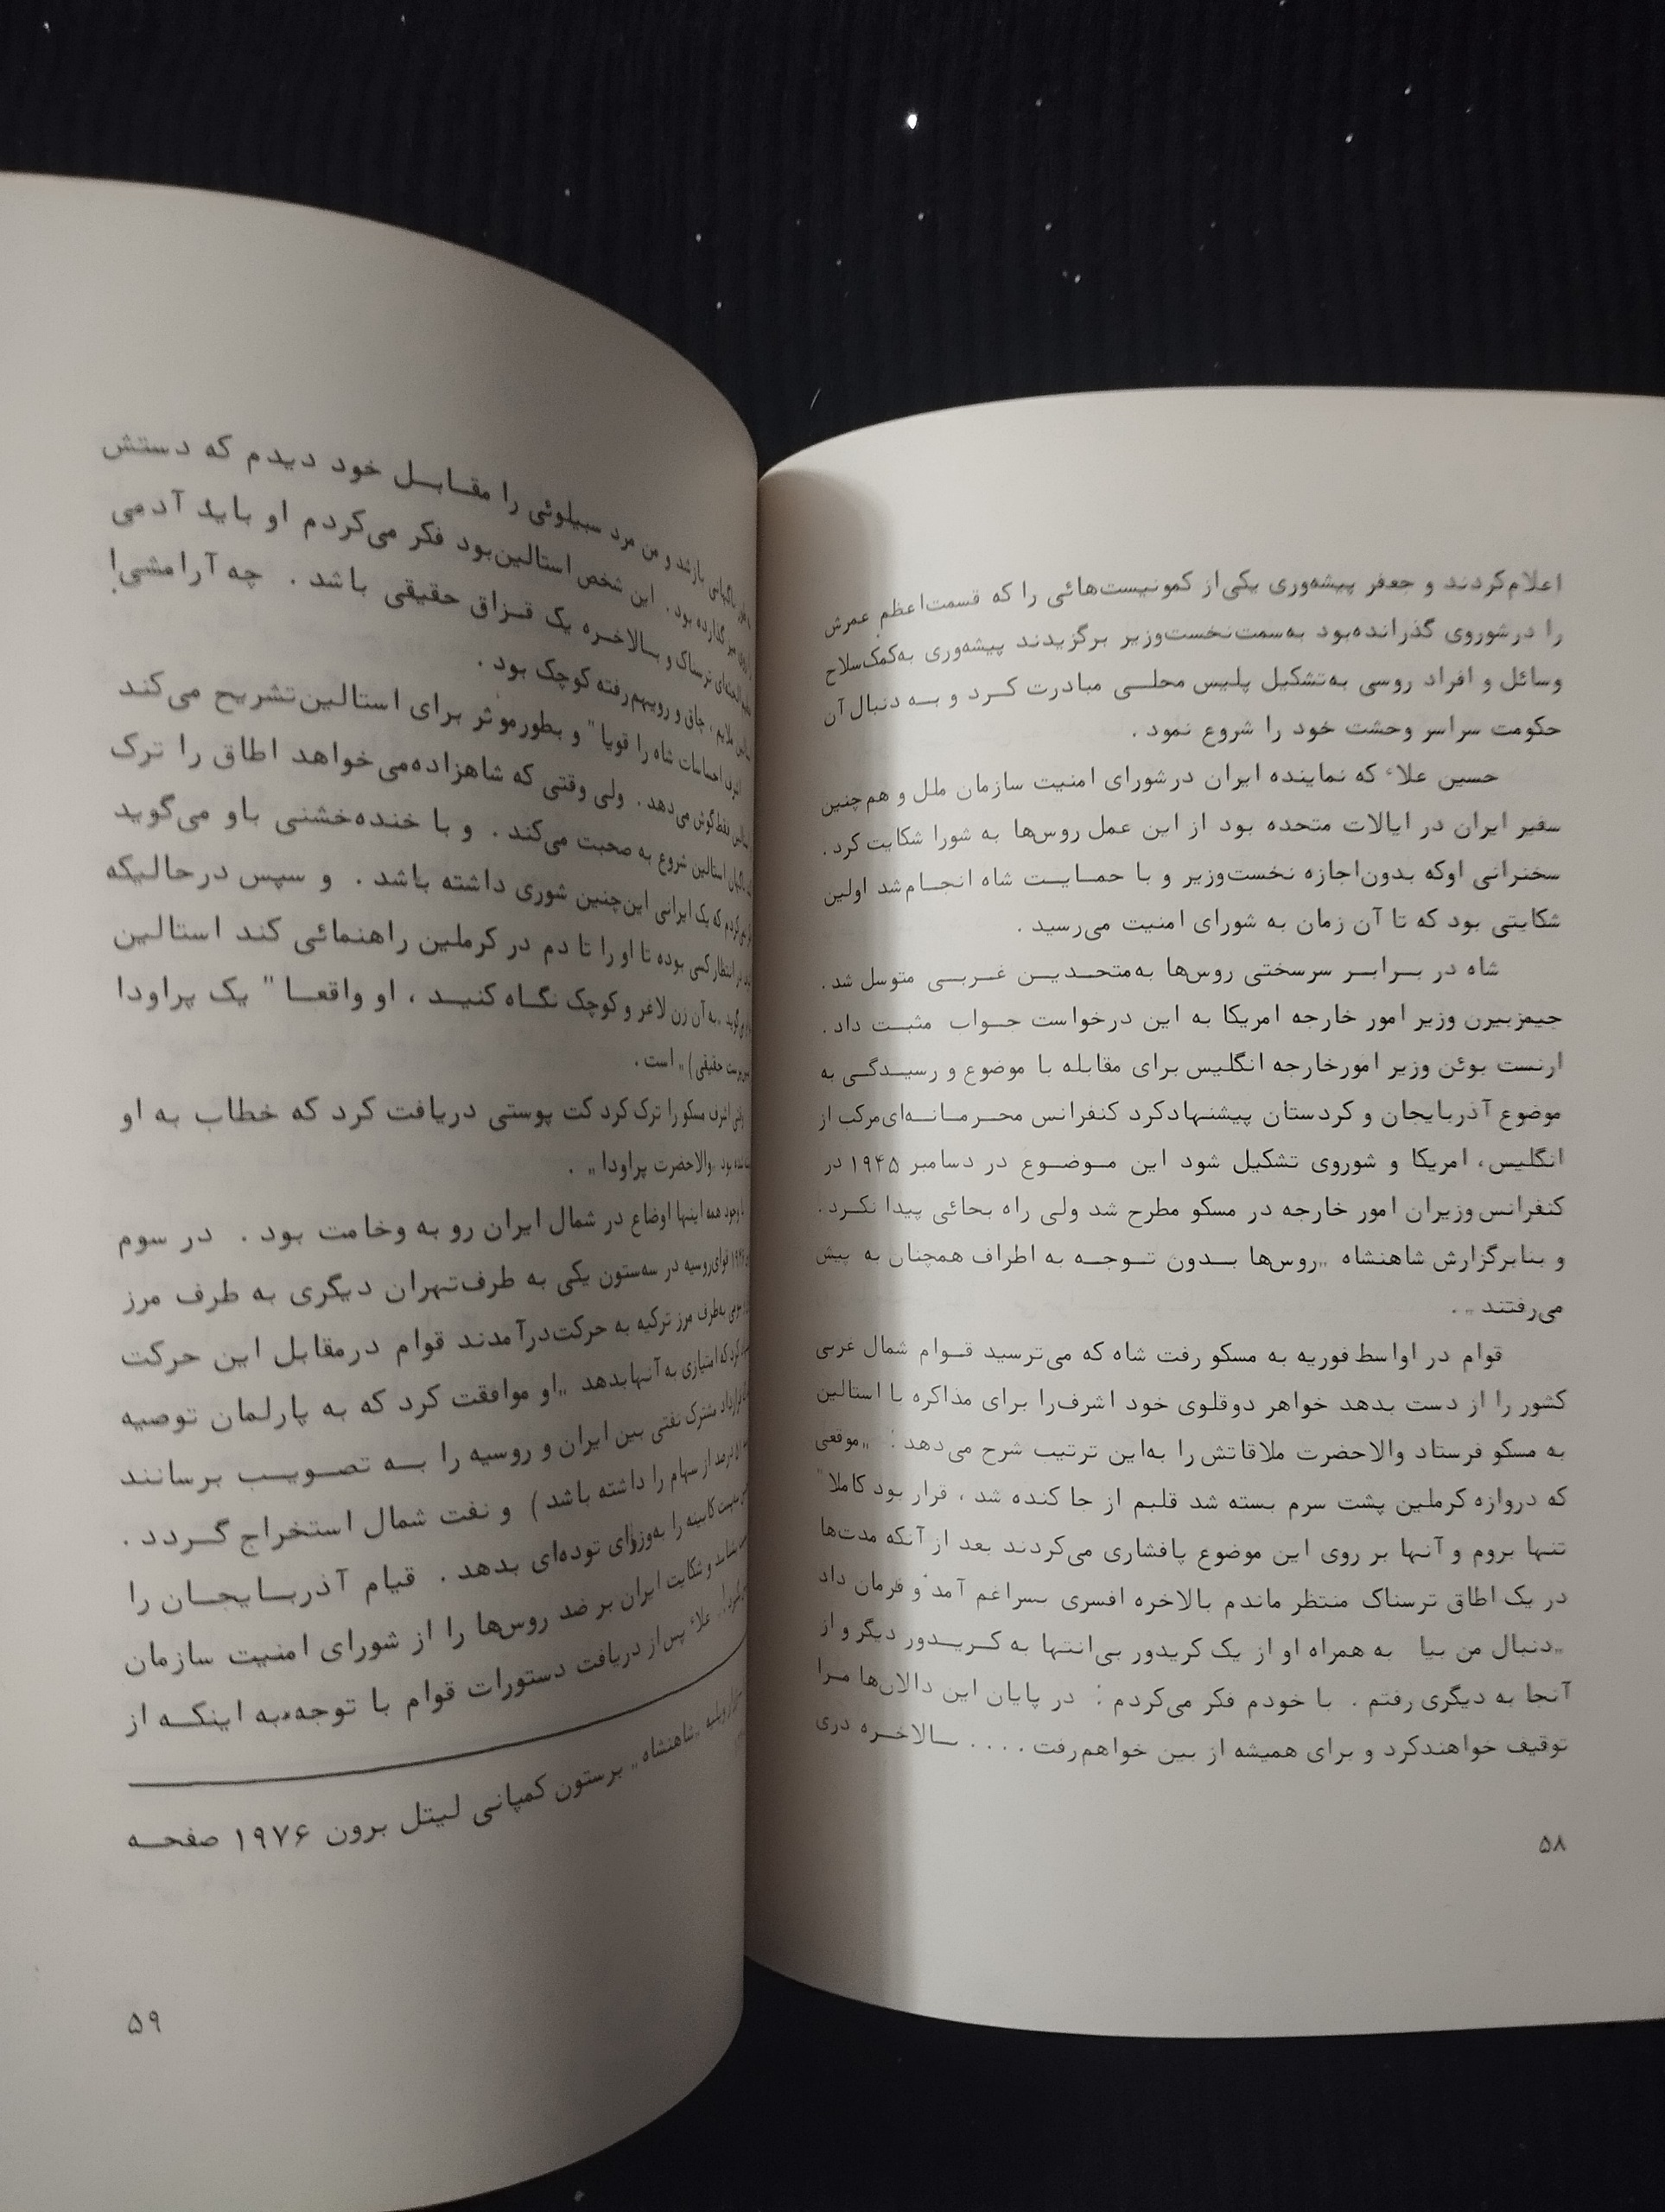 اعلام‌کردند و جعفر پیشه‌وری یکی‌از کمونیست‌هائی را که قسمت‌اعظم عمرش
را درشوروی گذرانده‌بود به‌سمت‌نخست‌وزیر برگزیدند پیشه‌وری به‌کمک‌سلاح
وسائل و افراد روسی به‌تشکیل پلیس محلـی مبادرت کـرد و بـه دنبال آن
حکومت سراسر وحشت خود را شروع نمود .
حسین علاء که نماینده ایران درشورای امنیت سازمان ملل و هم‌چنین
سفیر ایران در ایالات متحده بود از این عمل روس‌ها به شورا شکایت کرد .
سخنرانی اوکه بدون‌اجازه نخست‌وزیر و با حمـایـت شاه انجـام‌شد اولین
شکایتی بود که تا آن زمان به شورای امنیت می‌رسید .
شاه در بـرابـر سرسختی روس‌ها به‌متحـدیـن غـربـی متوسل شد .
جیمزبیرن وزیر امور خارجه امریکا به این درخواست جـواب مثبـت داد .
ارنست بوئن وزیر امورخارجه انگلیس برای مقابله با موضوع و رسیـدگـی به
موضوع آذربایجان و کردستان پیشنهادکرد کنفرانس محـرمـانـه‌ای‌مرکب از
انگلیس، امریکا و شوروی تشکیل شود این مـوضـوع در دسامبر ۱۹۴۵ در
کنفرانس‌وزیران امور خارجه در مسکو مطرح شد ولی راه بجائی پیدا نکـرد .
و بنابرگزارش شاهنشاه „روس‌ها بـدون تـوجـه به اطراف همچنان به پیش
می‌رفتند „ .
قوام در اواسط فوریه به مسکو رفت شاه که می‌ترسید قـوام شمال غربی
کشور را از دست بدهد خواهر دوقلوی خود اشرف‌را برای مذاکره با استالین
به مسکو فرستاد والاحضرت ملاقاتش را به‌این ترتیب شرح می‌دهد : „موقعی
که دروازه کرملین پشت سرم بسته شد قلبم از جا کنده شد ، قرار بود کاملا"
تنها بروم و آنها بر روی این موضوع پافشاری می‌کردند بعد از آنکه مدت‌ها
در یک اطاق ترسناک منتظر ماندم بالاخره افسری بسراغم آمد و فرمان داد
„دنبال من بیا به همراه او از یک کریدور بی‌انتها به کـریـدور دیگر و از
آنجا به دیگری رفتم . با خودم فکر می‌کردم : در پایان این دالان‌ها مـرا
توقیف خواهندکرد و برای همیشه از بین خواهم‌رفت .... بـالاخـره دری
۵۸
ناگهانی بازشد و من مرد سبیلوئی را مقـابـل خود دیدم که دستش
میز گذارده بود . این شخص استالین‌بود فکر می‌کردم او باید آدمی
ترسناک و بـالاخـره یک قـزاق حقیقی باشد . چه آرامشی!
ملایم ، چاق و رویهم‌رفته کوچک بود .
احساسات شاه را قویا" و بطورموثر برای استالین‌تشریح می‌کند
فقط‌گوش می‌دهد . ولی وقتی که شاهزاده‌می‌خواهد اطاق را ترک
ناگهان استالین شروع به صحبت می‌کند . و با خنده‌خشنی باو می‌گوید
که یک ایرانی این‌چنین شوری داشته باشد . و سپس درحالیکه
انتظار کسی بوده تا او را تا دم در کرملین راهنمائی کند استالین
„به آن زن لاغر و کوچک نگـاه کنیـد ، او واقعـا" یک پراودا
حقیقی) „ است .
اشرف مسکو را ترک کرد کت پوستی دریافت کرد که خطاب به او
شده بود „والاحضرت پراودا„ .
با وجود همه اینها اوضاع در شمال ایران رو به وخامت بود . در سوم
قوای‌روسیه در سه‌ستون یکی به طرف‌تهران دیگری به طرف مرز
به‌طرف مرز ترکیه به حرکت‌درآمدند قوام درمقابل این حرکت
که امتیازی به آنهابدهد „او موافقت کرد که به پارلمان توصیه
قرارداد مشترک نفتی بین ایران و روسیه را بـه تصـویـب برسانند
درصد از سهام را داشته باشد) و نفت شمال استخراج گـردد .
کابینه را به‌وزرای توده‌ای بدهد . قیام آذربـایجـان را
و شکایت ایران بر ضد روس‌ها را از شورای امنیت سازمان
علاء پس‌از دریافت دستورات قوام با توجه‌به اینکـه از
„شاهنشاه„ برستون کمپانی لیتل برون ۱۹۷۶ صفحـه
۵۹